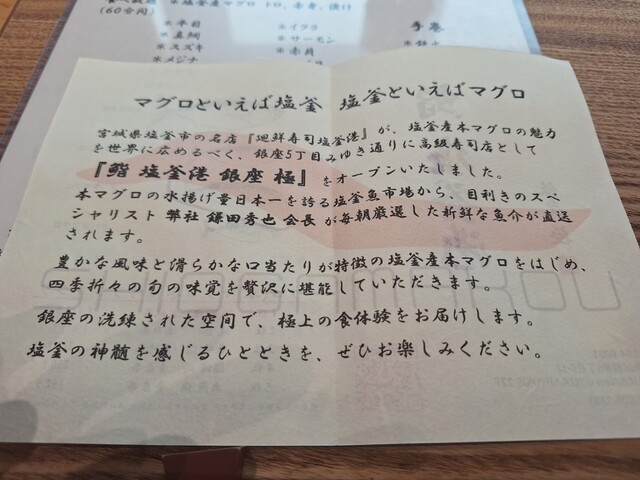 (60分間)
※塩釜産マグロ トロ、赤身、漬け
※平目
※真鯛
※スズキ
※メジナ
※イクラ
※サーモン
※赤貝
手巻
マグロといえば塩釜 塩釜といえばマグロ
宮城県塩釜市の名店『廻鮮寿司塩釜港』が、塩釜産本マグロの魅力
を世界に広めるべく、銀座5丁目みゆき通りに高級寿司店として
『鮨 塩釜港 銀座 極』をオープンいたしました。
本マグロの水揚げ量日本一を誇る塩釜魚市場から、目利きのスペ
シャリスト 弊社 鎌田秀也 会長 が毎朝厳選した新鮮な魚介が直送
されます。
豊かな風味と滑らかな口当たりが特徴の塩釜産本マグロをはじめ、
四季折々の旬の味覚を贅沢に堪能していただきます。
銀座の洗練された空間で、極上の食体験をお届けします。
塩釜の神髄を感じるひとときを、ぜひお楽しみください。